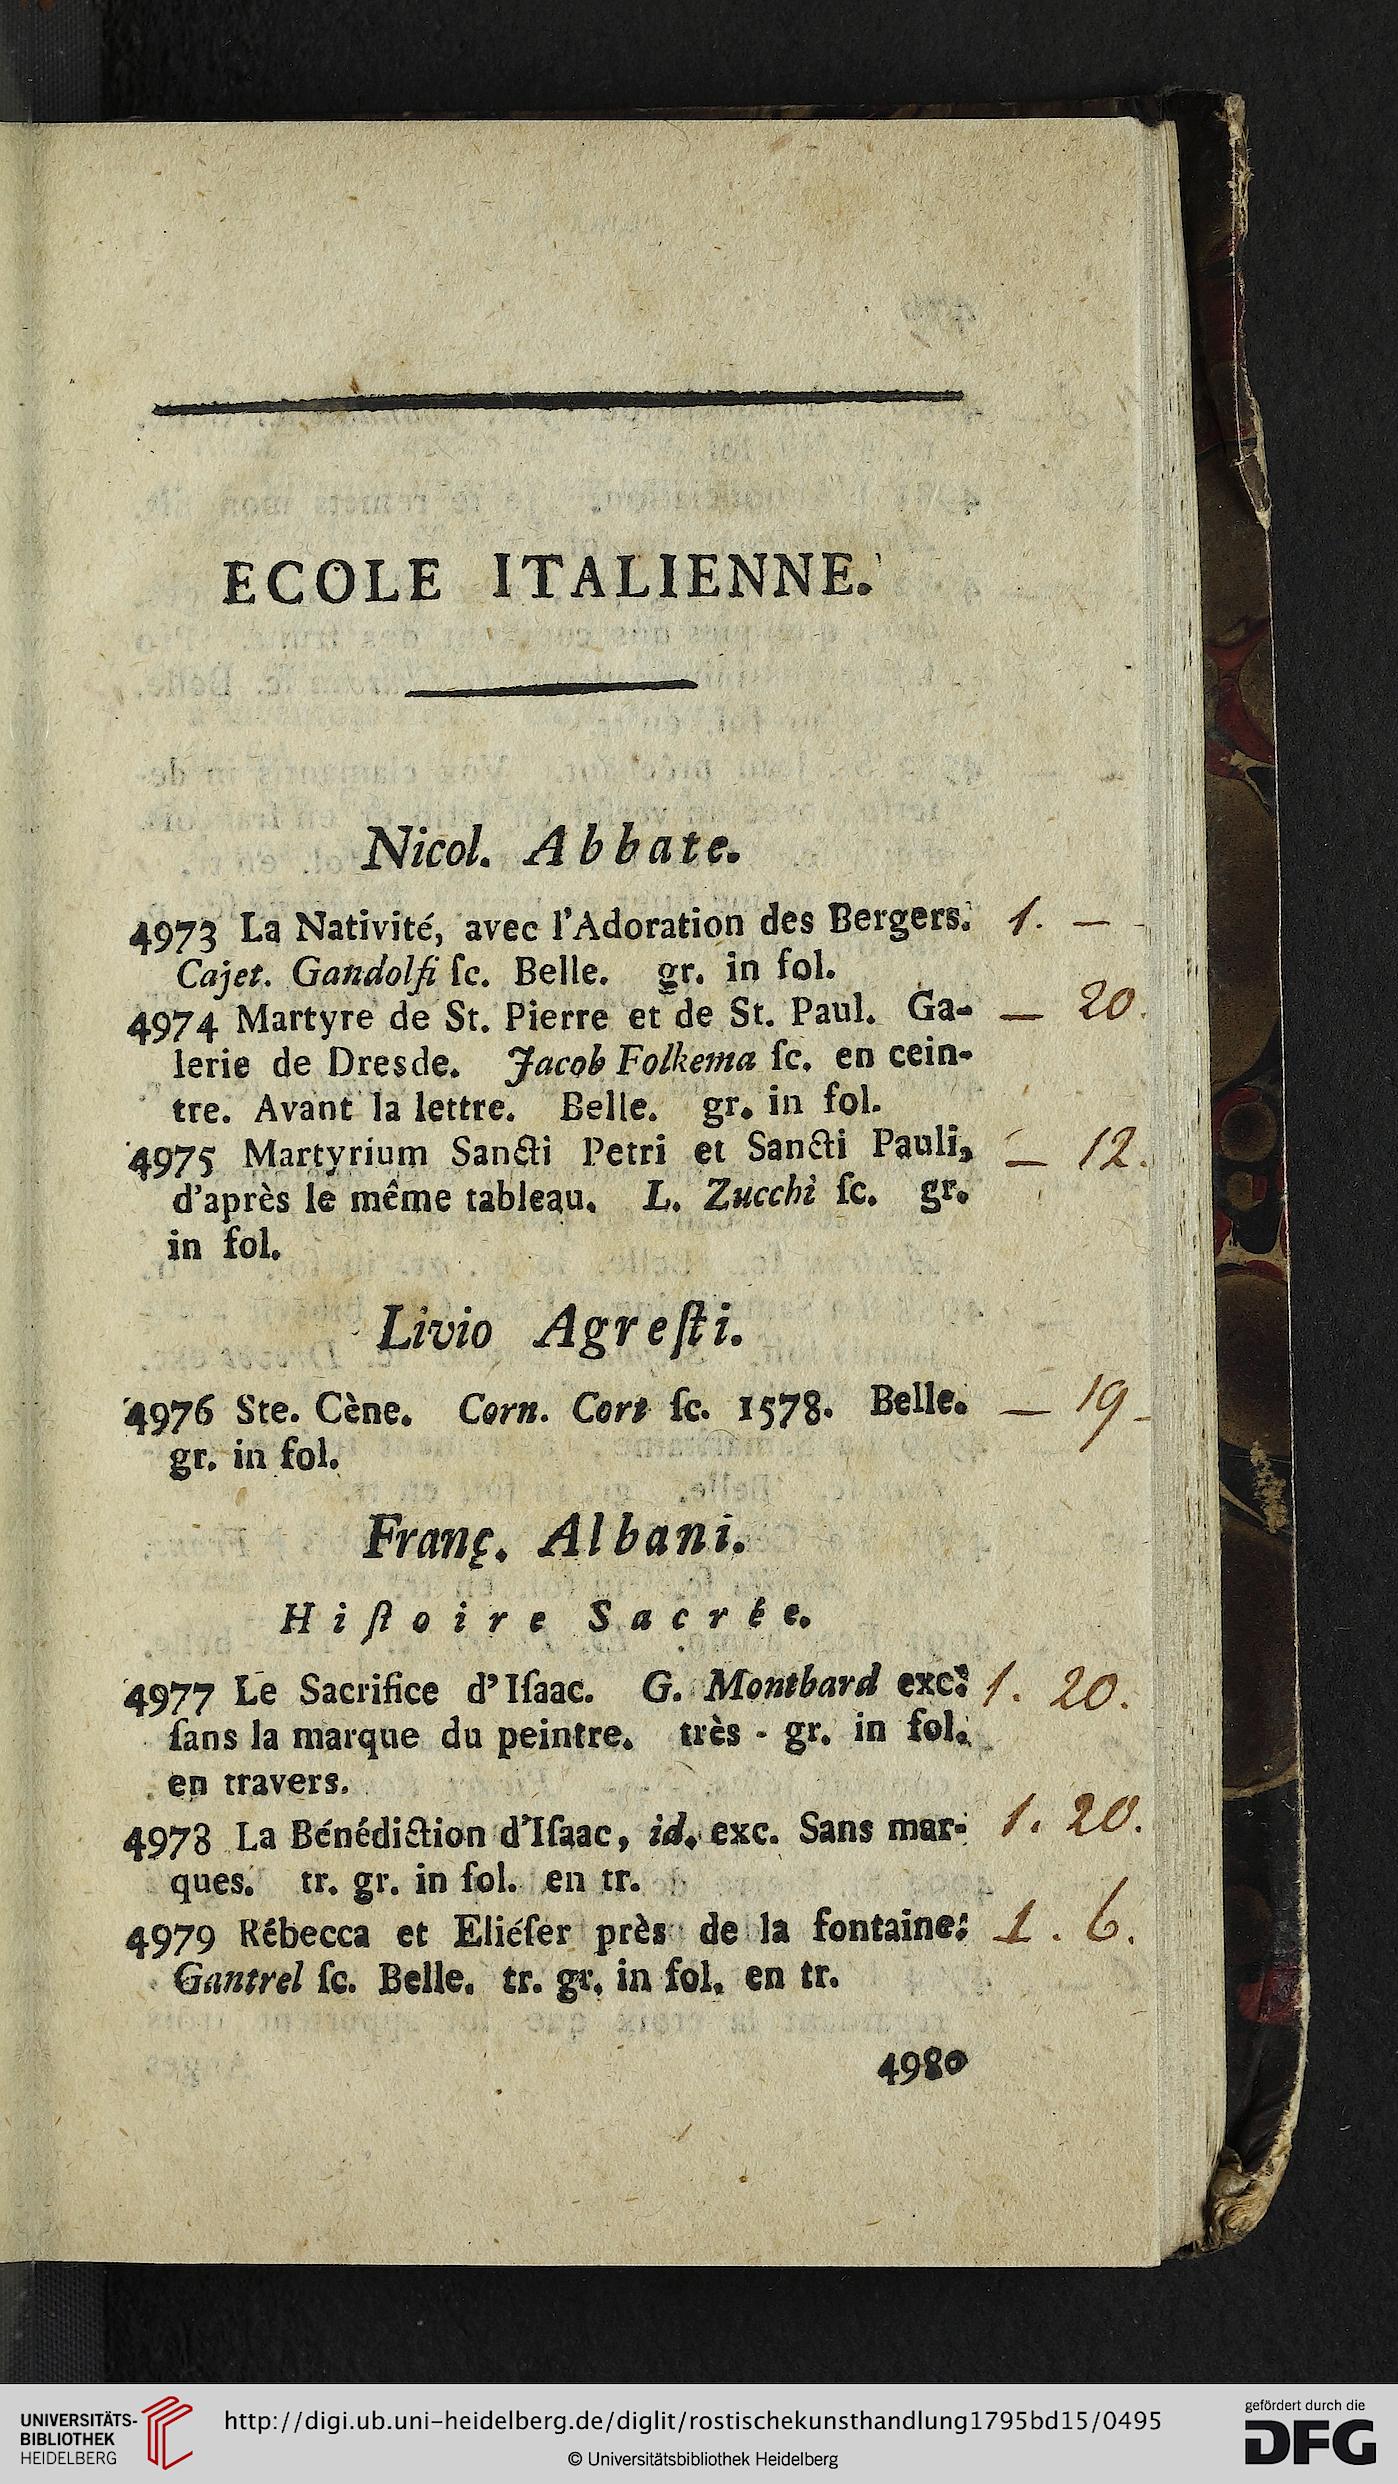 ECOLE ITALIENNE.
Nicol. Abbate.
4973 La Nativité, avec l'Adoration des Bergers. 1. —
Cajet. Gandolfi ſc. Belle. gr. in fol.
4974 Martyre de St. Pierre et de St. Paul. Ga- — 20.
lerie de Dresde. Jacob Folkema ſc. en cein-
tre. Avant la lettre. Belle. gr. in fol.
4975 Martyrium Sancti Petri et Sancti Pauli, — 12.
d'après le même tableau. L. Zucchi ſc. gr.
in fol.
Livio Agreſti.
4976 Ste. Cène. Corn. Cort ſc. 1578. Belle. — 19 -
gr. in fol.
Franç. Albani.
Hiſtoire Sacrée.
4977 Le Sacrifice d'Iſaac. G. Montbard exc: 1. 20.
ſans la marque du peintre. très - gr. in fol.
en travers.
4978 La Bénédiction d'Iſaac, id. exc. Sans mar- 1. 20.
ques. tr. gr. in fol. en tr.
4979 Rébecca et Eliéſer près de la fontaine: 1. 6.
Gantrel ſc. Belle. tr. gr. in fol. en tr.
4980
UNIVERSITÄTS-
BIBLIOTHEK
HEIDELBERG
http://digi.ub.uni-heidelberg.de/diglit/rostischekunsthandlung1795bd15/0495
© Universitätsbibliothek Heidelberg
gefördert durch die
DFG